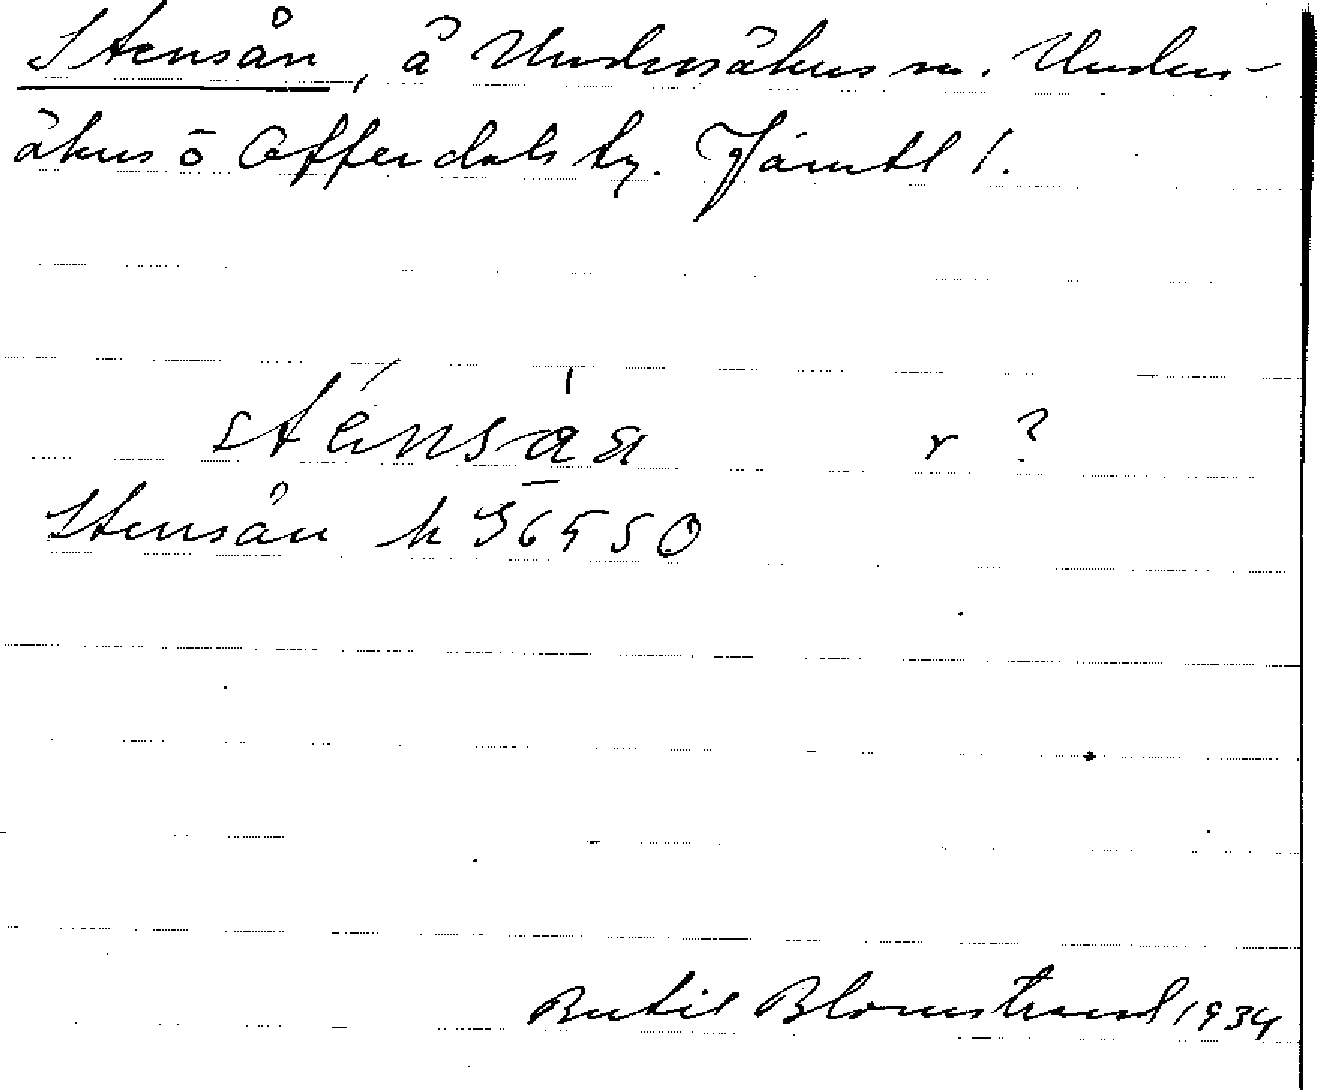 Stensån, å Undersåkers sn. Unders-
åkers o Offerdals tg. Jämtl l.
sténsa̱a r ?
Stensån k 56550
Bertil Blomstrand 1934